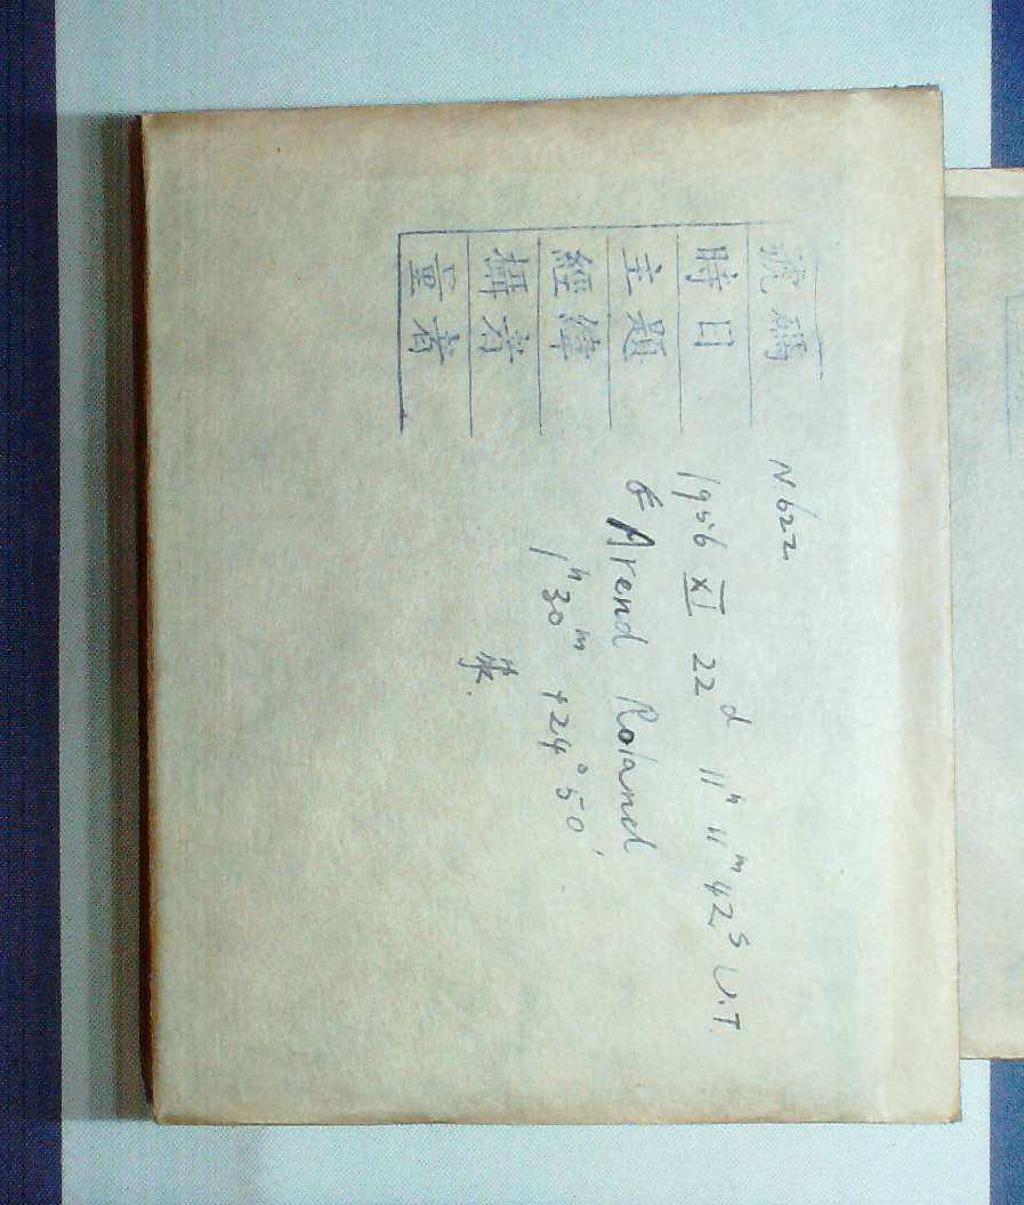 號碼 N622
時日 1956 XI 22d 11h 11m 42s U.T.
主題 Arend Roland
經緯 1h30m +24°50'
攝者 張.
量者